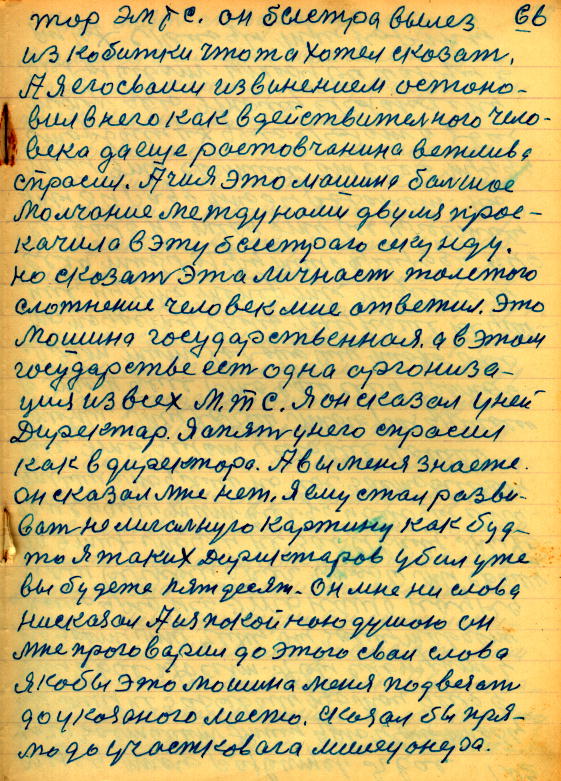 66
тор эмтс. он быстра вылез
из кобитки что та хотел сказат.
А я его сваим извинением остоно-
вил в него как в действителного чело-
века да еще ростовчанина ветлива
спрасил. А чия это машина болшое
молчание между нами двумя прос-
качила в эту быстраю секунду.
но сказат эта личност толстого
слотнение человек мне ответил. Это
мошина государственная. а в этом
государстве ест одна аргониза-
ция из всех М.Т.С. Я он сказал у ней
Директар. Я апят у него спрасил
как в директора. А вы меня знаете.
он сказал мне нет. Я ему стал разви-
ват нелигалную картину как буд-
то я таких Дириктаров убил уже
вы будете пятдесят. Он мне ни слова
нисказал А из покойною душою он
мне проговарил до этого сваи слова
якобы это мошина меня подвезат
до указаного место. Сказал бы пря-
мо до участковага милецонера.